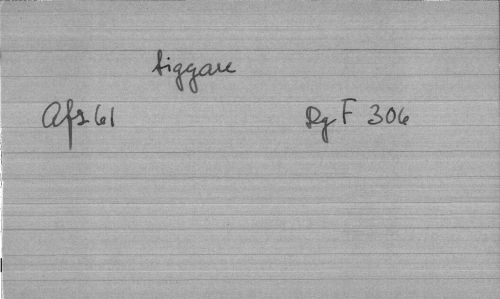 tiggare
Afs 61 Dg F 306